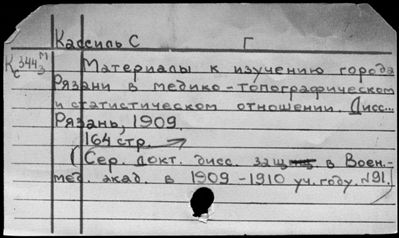 Кассиль С Г
К 344 М
с з
Материалы к изучению города
Рязани в медико-топографическом
и статистическом отношении. Дисс...
Рязань, 1909.
164 стр.
(Сер. докт. дисс. защ в Воен.-
мед. акад. в 1909-1910 уч. году. №91.)